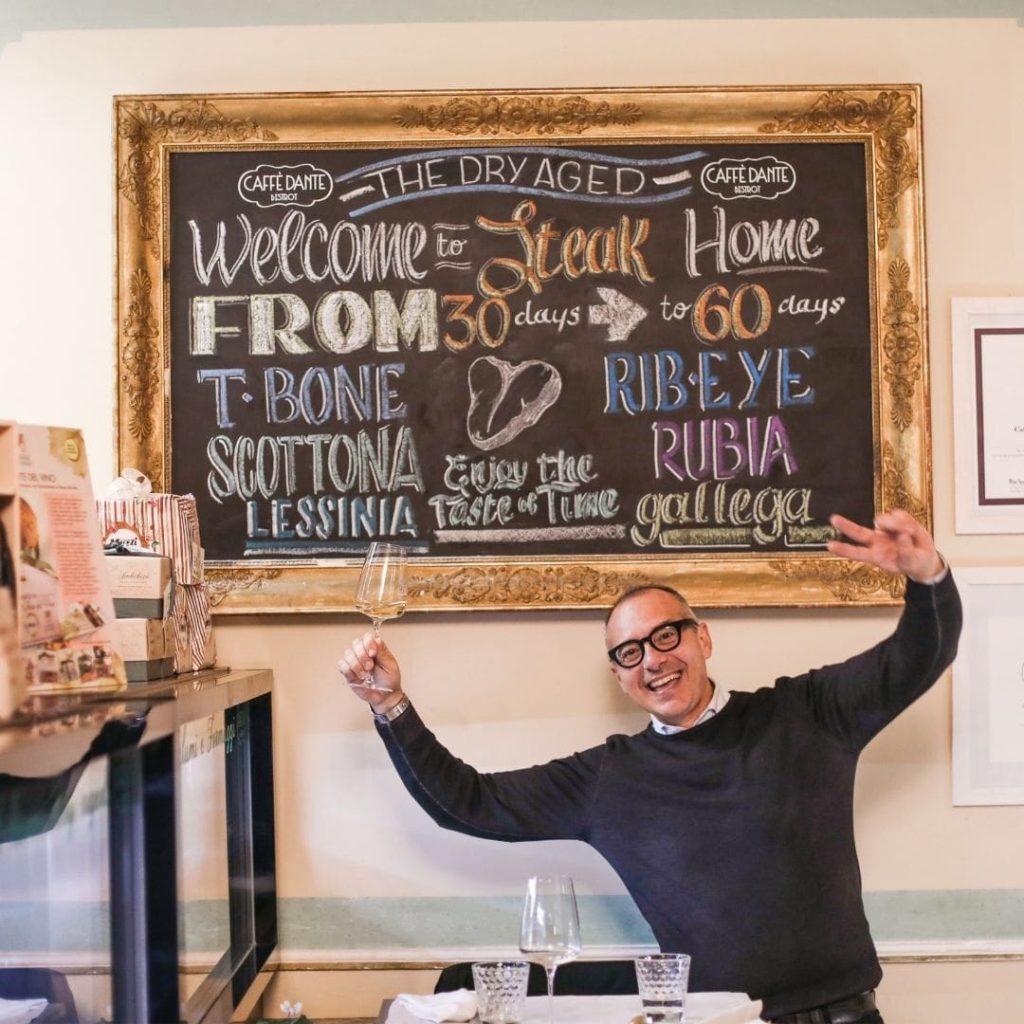 CAFFÈ DANTE
BISTROT
THE DRY AGED
CAFFÈ DANTE
BISTROT
Welcome to Steak Home
FROM 30 days to 60 days
T·BONE
RIB·EYE
SCOTTONA
RUBIA
LESSINIA
gallega
Enjoy the
Taste of Time
DEL VINO